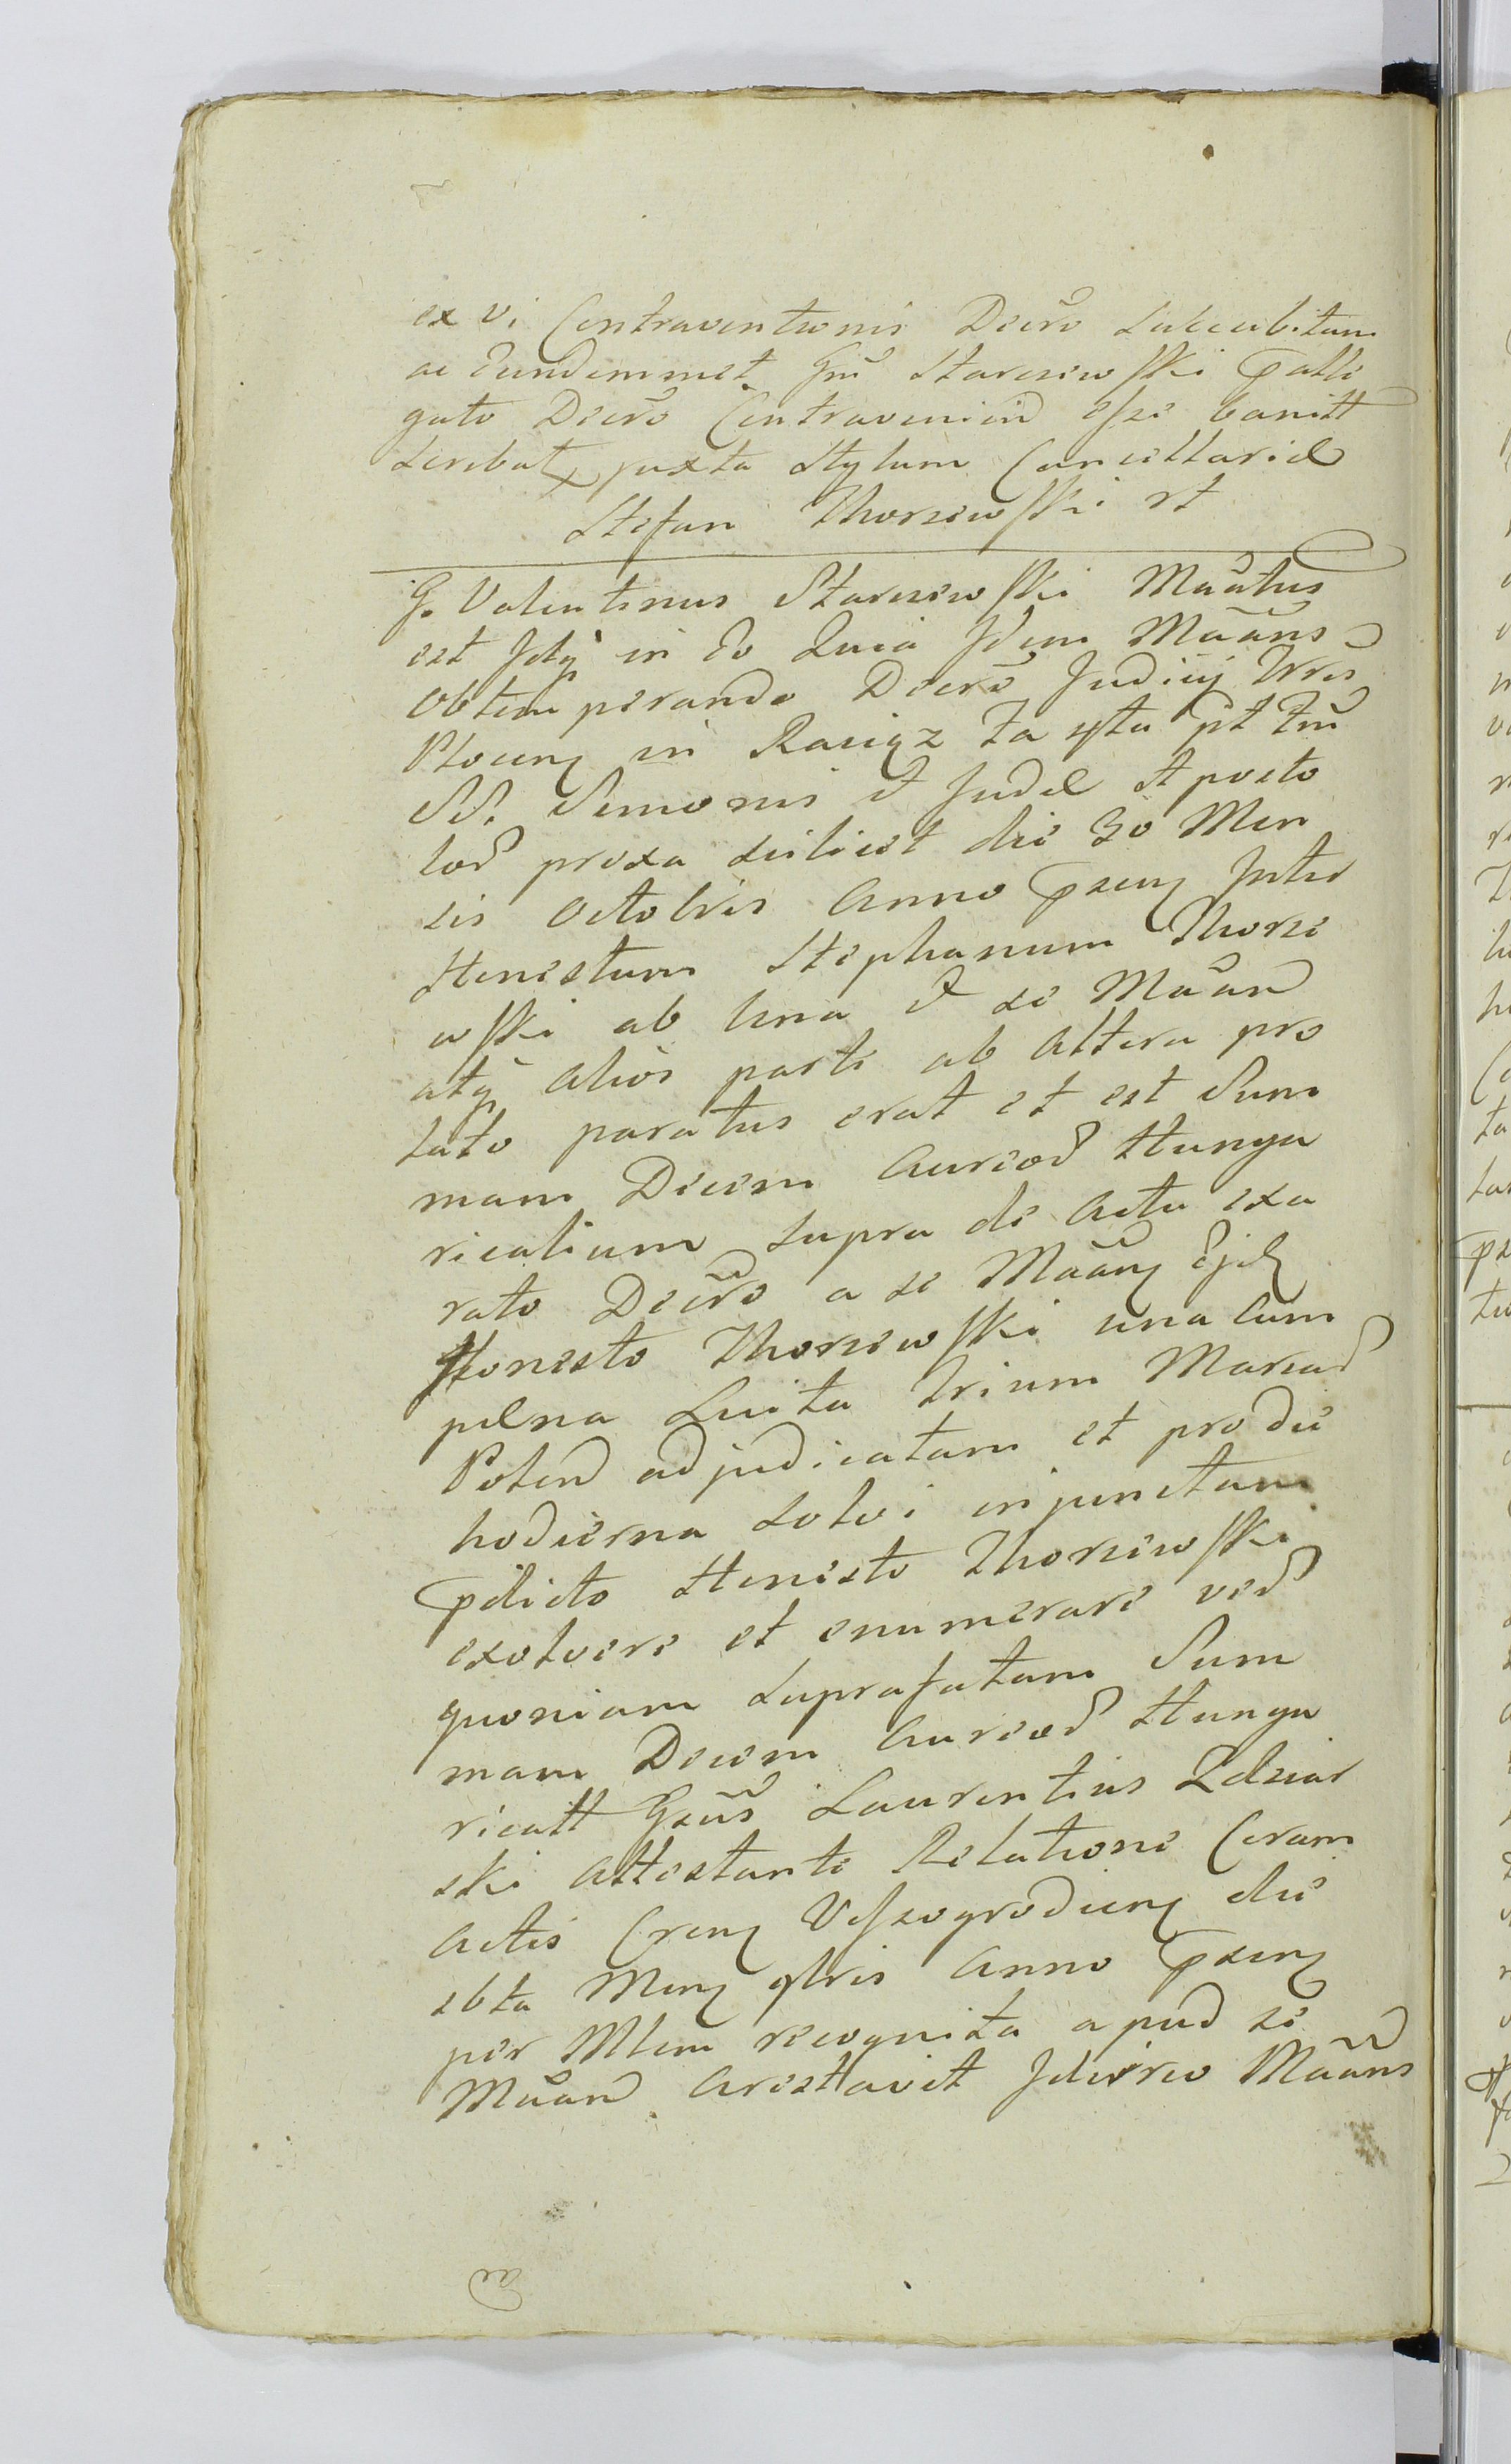 ex vi Contraventionis Decro succubitum
ac Eundemmet Gnu Starczewski patle
gato Decro Contravenien esse banitt
scribat juxta stylum Cancellariæ
Stefan Thorzewski rt
G. Valentinus Starczewski Maatus
est Idq in Eo Quia Idem Maans
obtemperando Decro Judicij Trris
Plocen in Raciąz Fa 4ta pt Fm
SS. Simonis et Judæ Aposto
lor proxa scilicet die 30 Men
sis Octobris Anno psen Inter
Honestum Stephanum Thorze
wski ab Una et se Maan
atq alios parte ab Altera pro
lato paratus erat et est Sum
mam Decem Aureor Hunga
ricalium supra de Actu exa
rato Decro a se Maan Ejd
Honesto Thorzewski una cum
pæna Luita trium Marcar
Polon adjudicatam et pro die
hodierna solvi injunctam
pdicto Honesto Thorzewski
exolvere et enumerare ver
quoniam suprafatam Sum
mam Decem Aureor Hunga
ricall Gsus Laurentius Zdziar
ski Attestante Relatione Coram
Actis Cren Visszogrodien die
sbta Men 9bris Anno psen
per Mlem recognita apud se
Maan Arestavit Idcirco Maans
ad